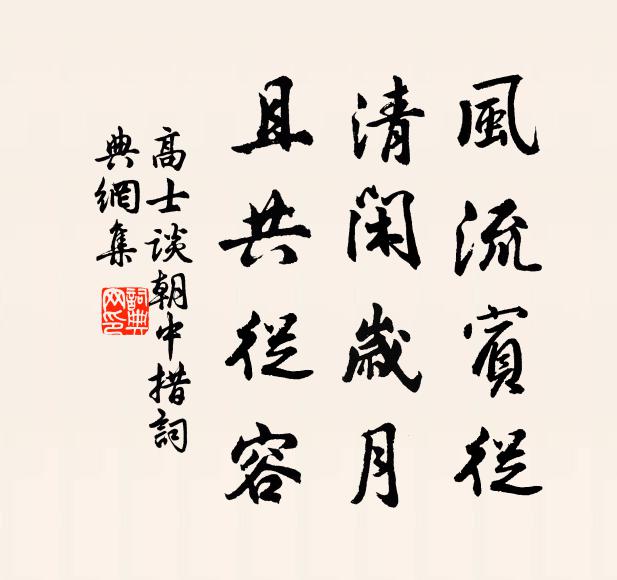 風流賓從
清閑歲月
且共從容
高士談朝中措詞
典網集
詞典
网印